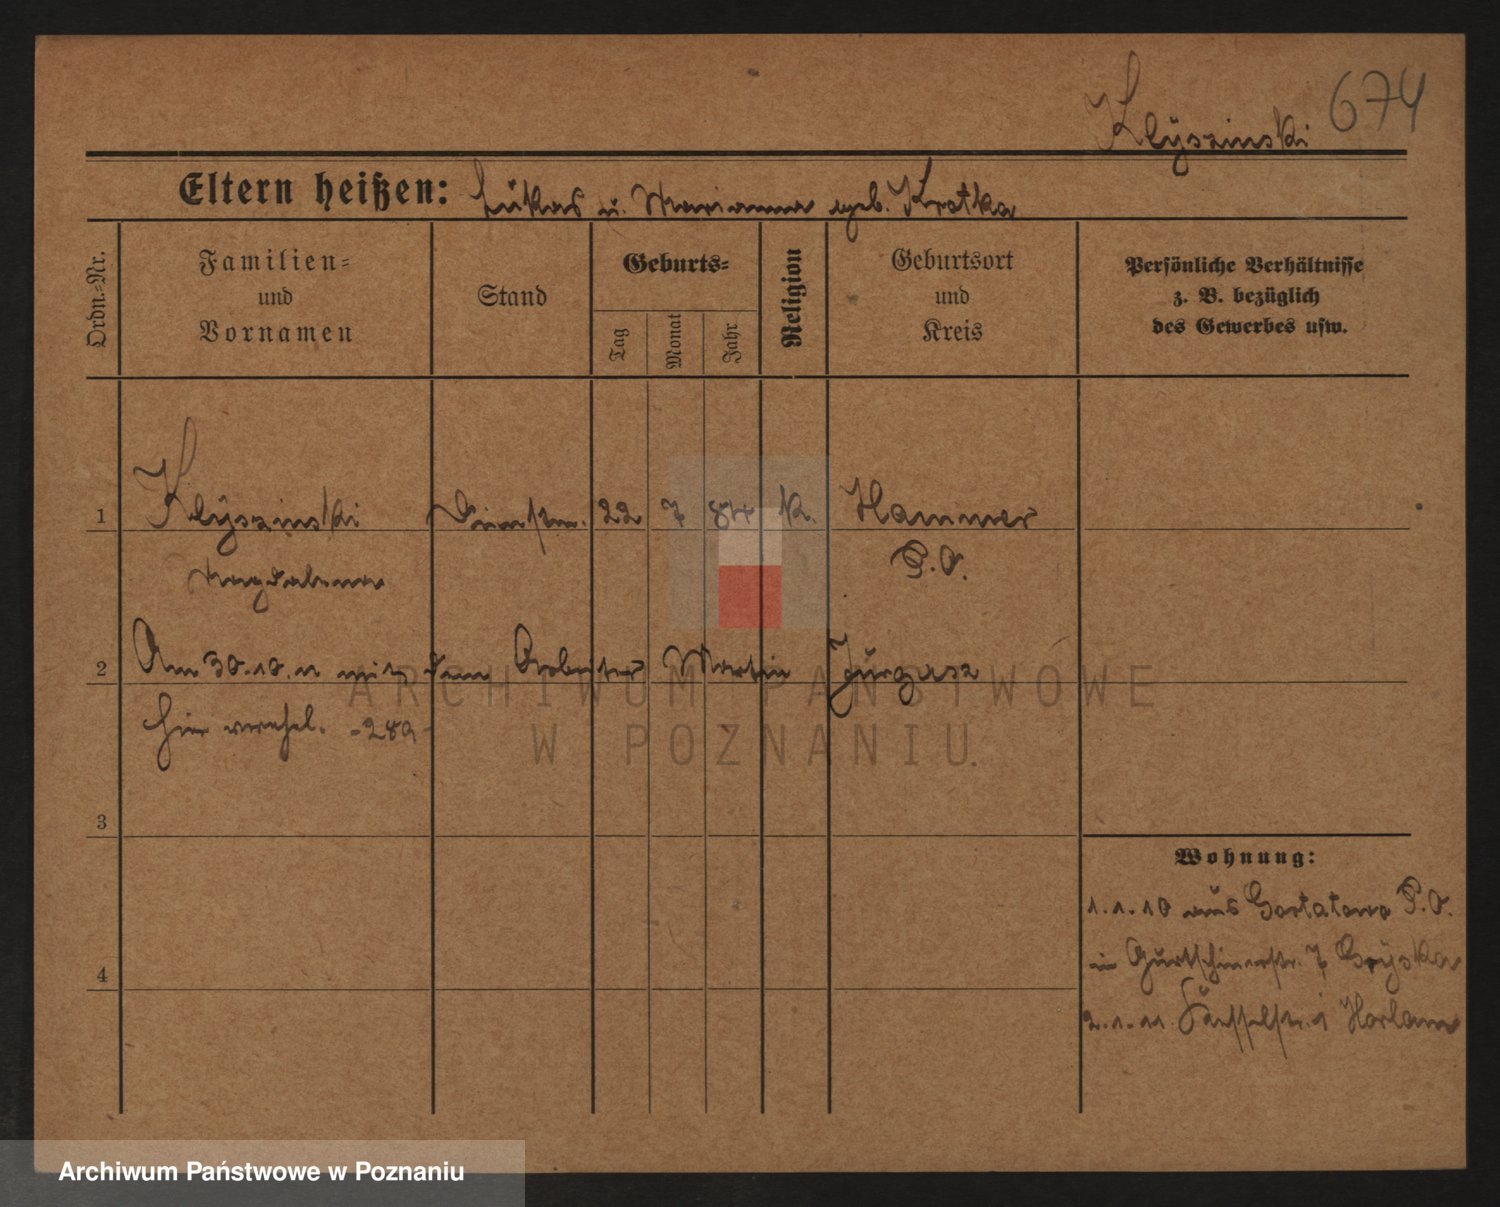 Klÿszinski 674
Eltern heißen: Lukas u. Marianna geb. Krotka
Ordn.=Nr.
Familien=
und
Vornamen
Stand
Geburts=
Tag
Monat
Jahr
Religion
Geburtsort
und
Kreis
Persönliche Verhältnisse
z. B. bezüglich
des Gewerbes usw.
1 Klÿszinski 22 7 84 K. Hammer
Magdalena P.O.
2 Am 30.10.11 mit dem Arbeiter Martin Jurgasz
hier verehel. -289-
3
4
Wohnung:
1.1.10 aus Gortatowo P.O.
in Gurtschinerstr. 7
2.1.11.
ARCHIWUM PAŃSTWOWE
W POZNANIU
Archiwum Państwowe w Poznaniu